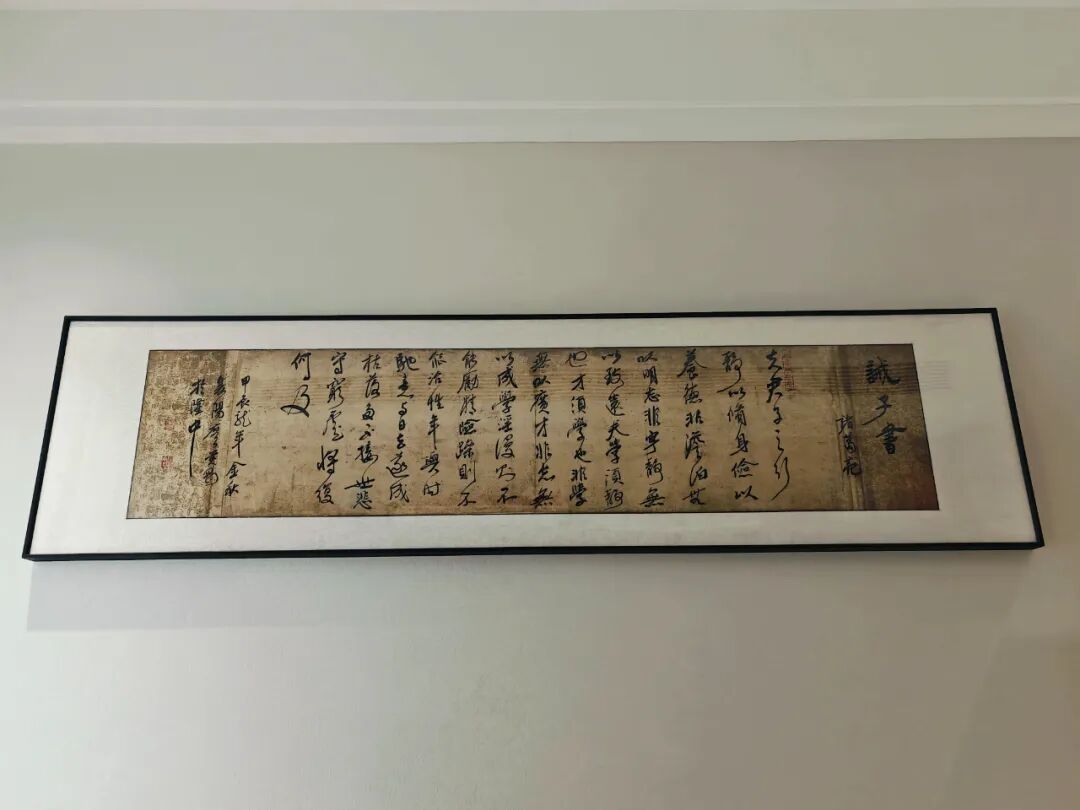 誡子書
諸葛亮
夫君子之行
靜以脩身儉以
養德非澹泊無
以明志非寧靜無
以致遠夫學須靜
也才須學也非學
無以廣才非志無
以成學淫漫則不
能勵精險躁則不
能治性年與時
馳意與日去遂成
枯落多不接世悲
守窮廬將復
何及
甲辰龍年金秋
襄陽
於漢中